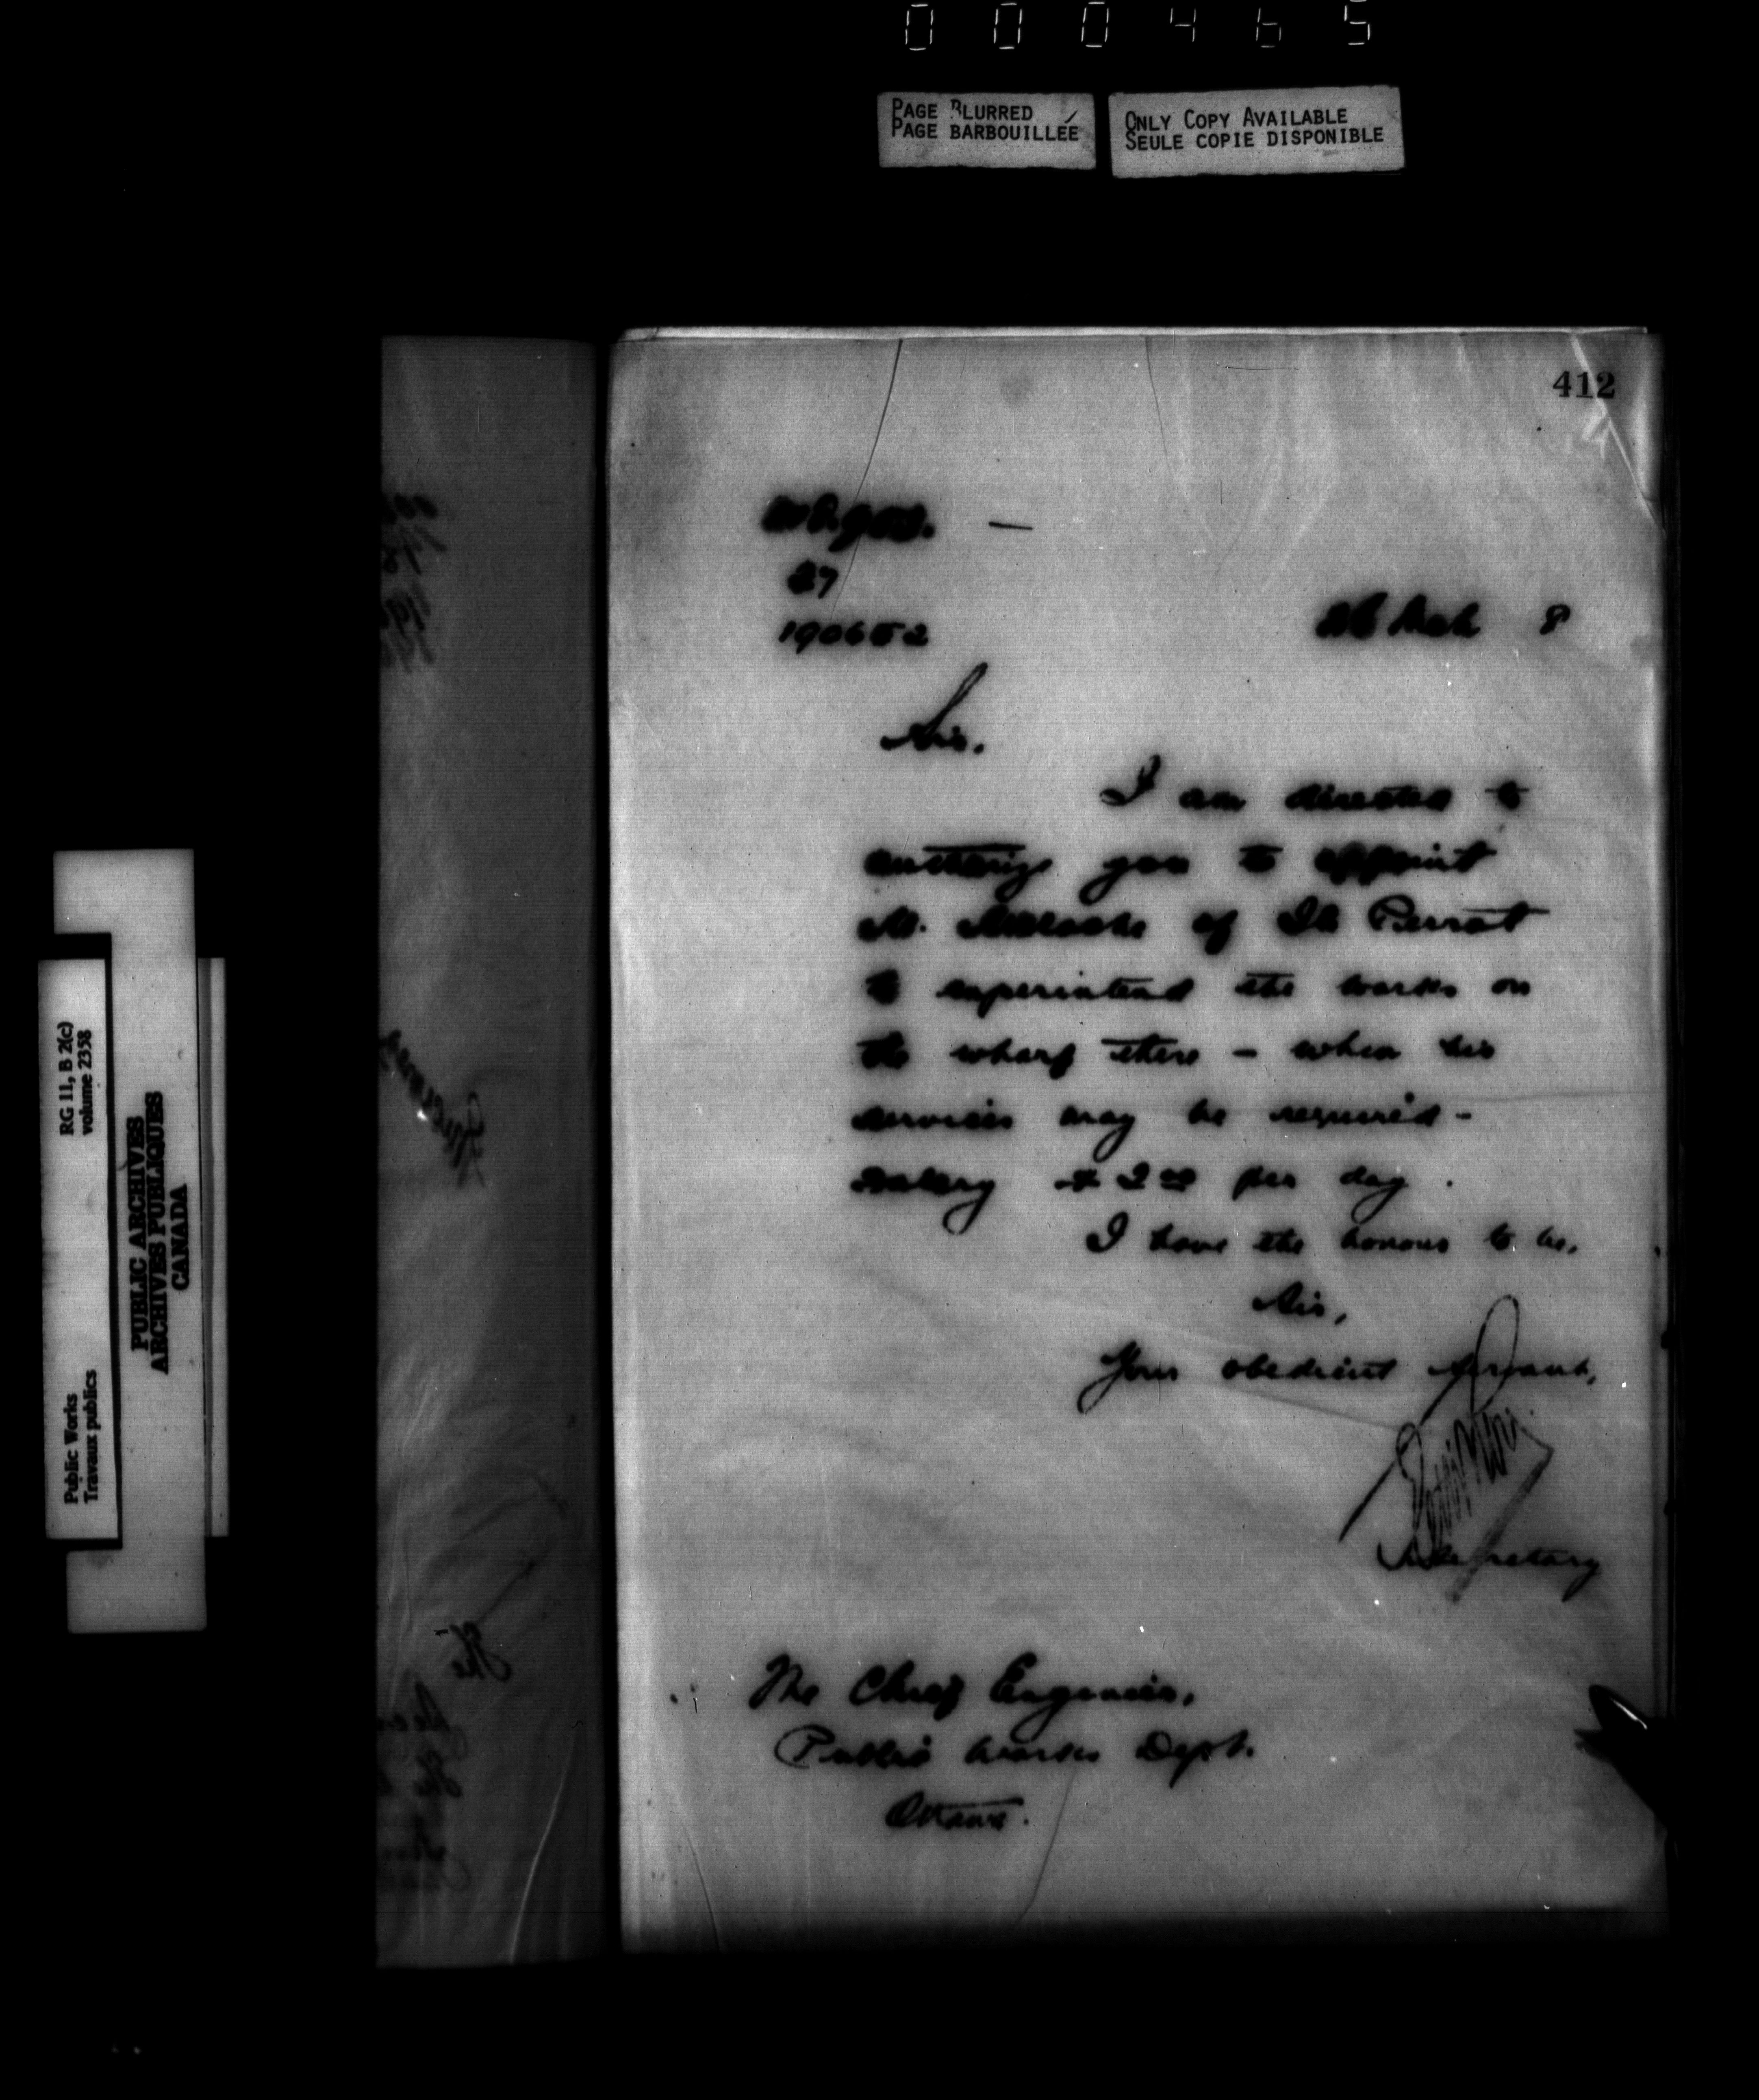 000465
PAGE BLURRED
PAGE BARBOUILLÉE
ONLY COPY AVAILABLE
SEULE COPIE DISPONIBLE
412
27
190652
8
Sir.
I am directed to
authorize you to appoint
M. of Ile Perrot
to superintend the works on
the wharf there - when his
services may be required -
salary $2.00 per day.
I have the honour to be,
Sir,
Your obedient servant,
Secretary
The Chief Engineer,
Public Works Dept.
Ottawa.
RG 11, B 2(c)
volume 2358
Public Works
Travaux publics
PUBLIC ARCHIVES
ARCHIVES PUBLIQUES
CANADA